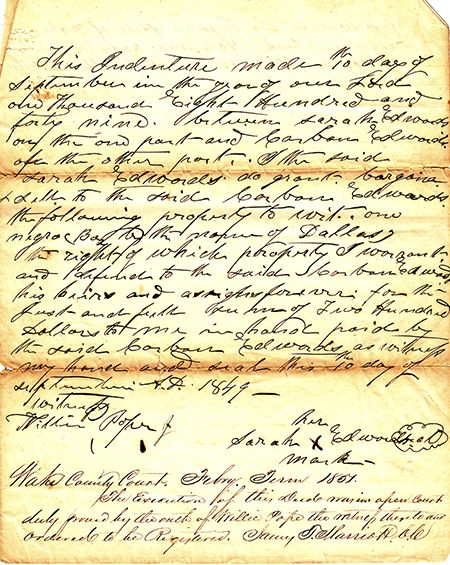 This Indenture made th 10 day of
September in the year of our Lord
one Thousand Eight Hundred and
forty nine. between Sarah Edwards
on the one part and Carban Edwards
of the other part. I the said
Sarah Edwards do grant bargain
& Sell to the said Carban Edwards
the following property to wit. one
negro Boy by the name of Dallas
the right of which property I warrant
and defend to the said Carban Edwards
his heirs and assigns forever: for the
Just and full Sum of Two Hundred
Dollars to me in hand paid by
the said Carban Edwards as witness
my hand and seal this 10 day of
September A.D. 1849 -
witness
Willie Pope
her
Sarah X Edwards Seal
mark -
Wake County Court Febry. Term 1851.
The Execution of this Deed was in open Court
duly proved by the oath of Willie Pope the witness thereto and
ordered to be Registered. T. Marriott